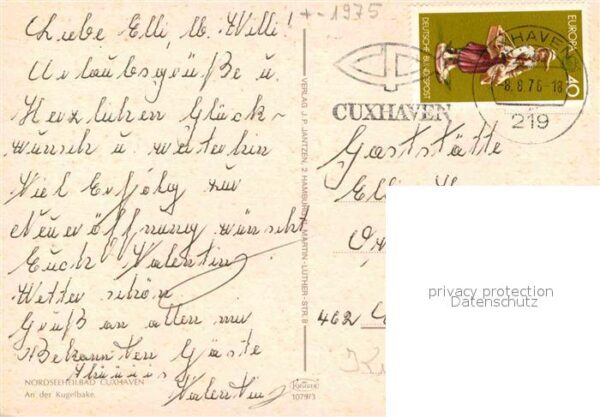 Liebe Elli, lb. Willi!
+ - 1975
Urlaubsgrüße u.
Herzlichen Glück-
wunsch u. weiterhin
Viel Erfolg zur
Neueröffnung wünscht
Euch Valentin
Wetter schön
Gruß an allen mir
Bekannten Gäste
Tschüüüs
Valentin
NORDSEEHEILBAD CUXHAVEN
An der Kugelbake.
VERLAG J. P. JANTZEN, 2 HAMBURG 70, MARTIN-LUTHER-STR. 8
1079/3
CUXHAVEN
-8.8.76-18
219
EUROPA
40
DEUTSCHE BUNDESPOST
Gaststätte
Elli
462
privacy protection
Datenschutz